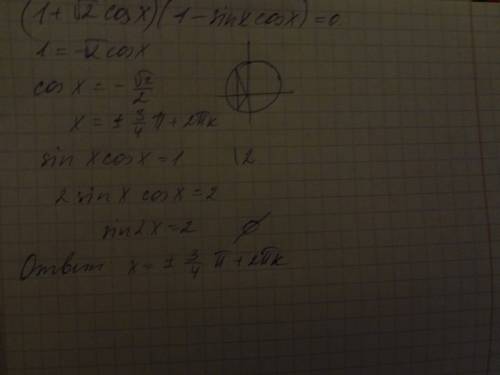 (1+√2 cosx)(1-sinx cosx)=0
1=-√2 cosx
cos x = -√2/2
x = ± 3/4 π+2πk
sin x cosx = 1 |2
2 sin x cosx = 2
sin2x = 2 ∅
Ответ x = ± 3/4 π+2πk